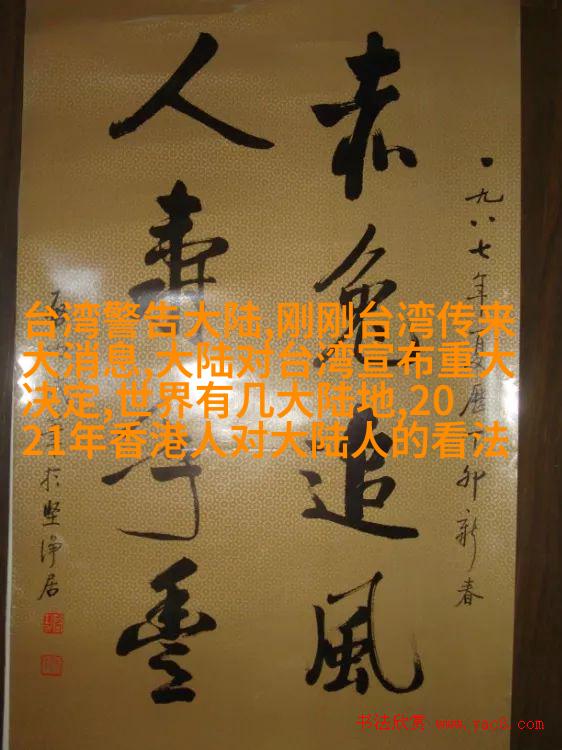 一九八七年夏曆丁卯新春
赤兔追風
人壽年豐
於堅淨居
台湾警告大陆,刚刚台湾传来
大消息,大陆对台湾宣布重大
决定,世界有几大陆地,20
21年香港人对大陆人的看法
书法欣赏 www.yac8.com